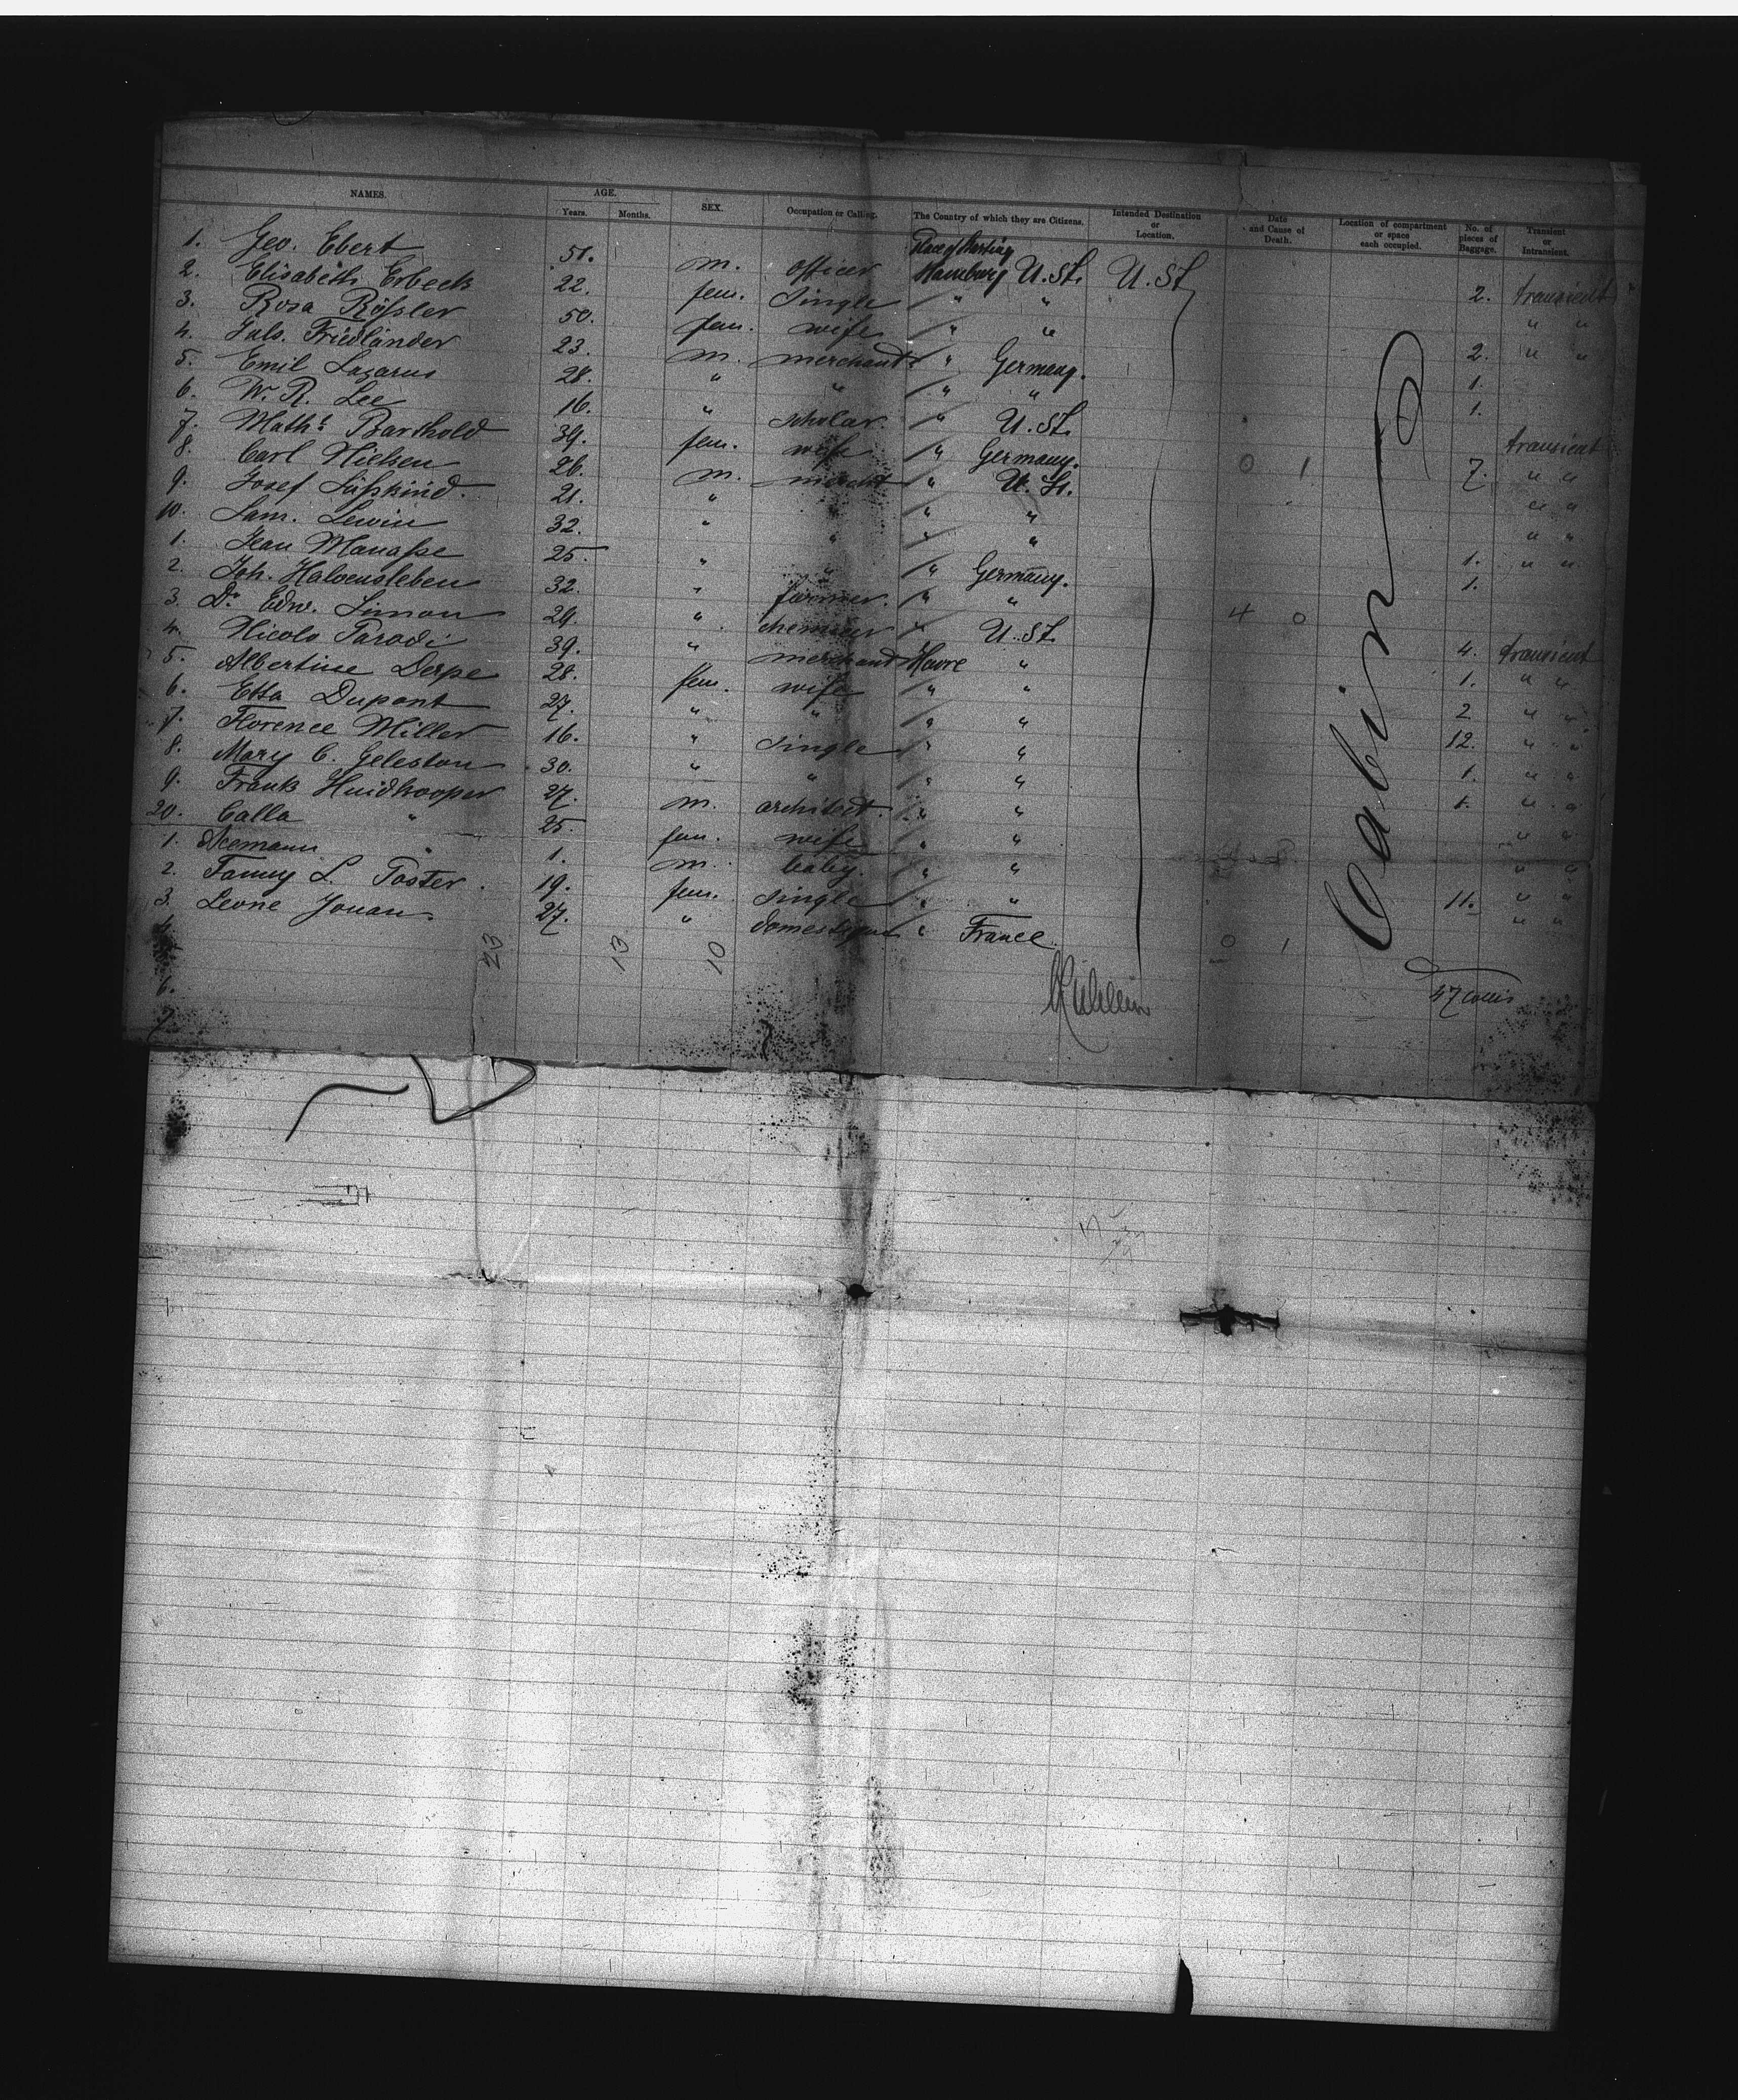 NAMES. AGE. Years. Months. SEX. Occupation or Calling. The Country of which they are Citizens. Intended Destination or Location. Date and Cause of Death. Location of compartment or space each occupied. No. of pieces of Baggage. Transient or Intransient.
Place of Starting
1. Geo. Ebert 51. m. officer Hamburg U. St. U. St 2. transient
2. Elisabeth Erbeck 22. fem. single " " " "
3. Rosa Rößler 50. fem. wife " " 2. " "
4. Juls. Friedländer 23. m. merchant " Germany. 1.
5. Emil Lazarus 28. " " " " 1.
6. W. R. Lee 16. " scholar. " U. St. transient
7. Maths Barthold 39. fem. wife " Germany. 0 1 7. " "
8. Carl Nielsen 26. m. mercht " U. St. " "
9. Josef Süßkind. 21. " " " " "
10. Sam. Lewin 32. " " " " 1. " "
1. Jean Manaße 25. " " " Germany. 1.
2. Joh. Halvensleben 32. " farmer. " "
3. Dr. Edw. Simon 29. " " U. St. 4 0 4. transient
4. Nicolo Parodi 39. " merchand Havre " 1. " "
5. Albertine Derpe 28. fem. wife " " 2 " "
6. Etta Dupont 27. " " " " 12. " "
7. Florence Miller 16. " single " " 1. " "
8. Mary C. Geleston 30. " " " " 1. " "
9. Frank Huidkooper 27. m. architect. " " " "
20. Calla " 25. fem. wife " " " "
1. " 1. m. baby. " " 11. " "
2. Fanny L. Foster. 19. fem. single " " " "
3. Leone Jouan. 27. " " France. 0 1
Cabin
23 13 10
6.
7.
47 Collis